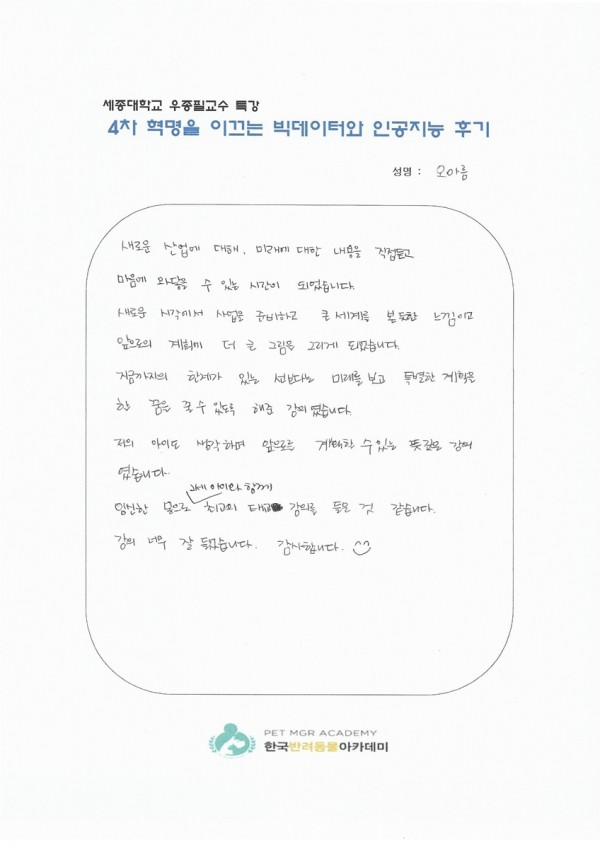 세종대학교 우종필교수 특강
4차 혁명을 이끄는 빅데이터와 인공지능 후기
성명 : 오아름
새로운 산업에 대해, 미래에 대한 내용을 직접듣고
마음에 와닿을 수 있는 시간이 되었습니다.
새로운 시각에서 사업을 준비하고 큰 세계를 본 듯한 느낌이고
앞으로의 계획에 더 큰 그림을 그리게 되었습니다.
지금까지의 한계가 있는 선보다는 미래를 보고 특별한 계획을
한 꿈을 꿀 수 있도록 해준 강의였습니다.
저의 아이도 생각하며 앞으로를 계획할 수 있는 뜻깊은 강의
였습니다.
2세 아이와 함께
임신한 몸으로 최고의 강의를 들은 것 같습니다.
강의 너무 잘 들었습니다. 감사합니다.
PET MGR ACADEMY
한국반려동물아카데미